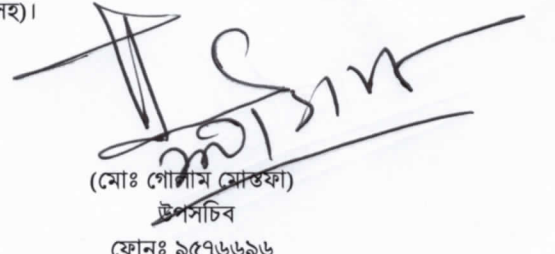 সহ)।
(মোঃ গোলাম মোস্তফা)
উপসচিব
ফোনঃ ৯৫৭৬৬৯৬